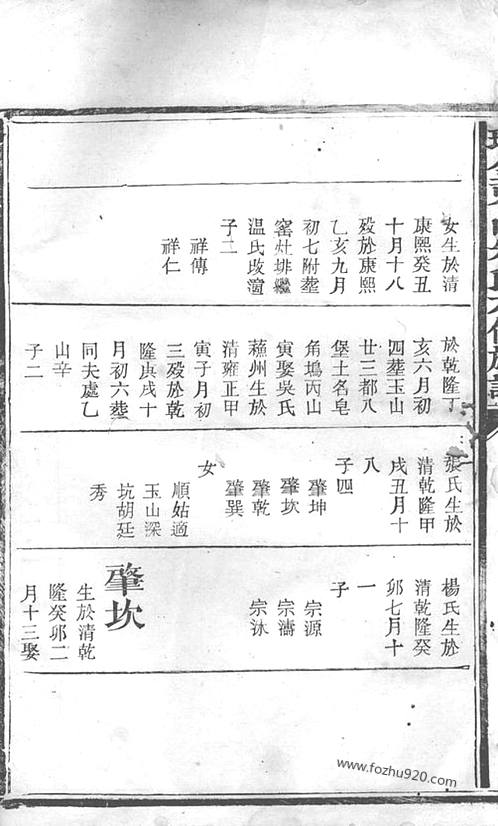 女生於清
康熙癸丑
十月十八
歿於康熙
乙亥九月
初七附塟
窰灶排繼
温氏改適
子二
祥傳
祥仁
於乾隆丁
亥六月初
四塟玉山
廿三都八
堡土名皂
角塢丙山
寅娶吳氏
蘓州生於
清雍正甲
寅子月初
三歿於乾
隆庚戌十
月初六塟
同夫處乙
山辛
子二
張氏生於
清乾隆甲
戌丑月十
八
子四
肇坤
肇坎
肇乾
肇巽
女
順姑適
玉山深
坑胡廷
秀
楊氏生於
清乾隆癸
卯七月十
一
子
宗源
宗濤
宗沐
肇坎
生於清乾
隆癸卯二
月十三娶
www.fozhu920.com